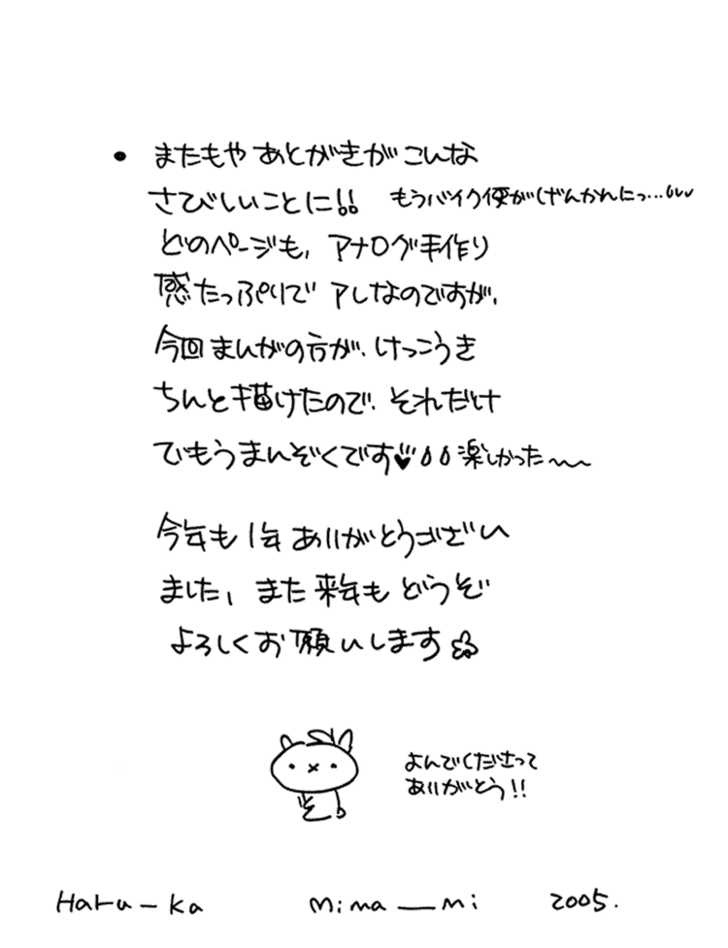 • またもや あとがきが こんな
さびしいことに!! もうバイク便がじかんかれにっ…
どのページも、アナログ手作り
感たっぷりで アレなのですが、
今回まんがの方が、けっこうき
ちんと描けたので、それだけ
でもうまんぞくです♥ 楽しかった〜〜
今年も1年ありがとうござい
ました、また来年も どうぞ
よろしくお願いします
よんでくださって
ありがとう!!
Haru–ka mina__mi 2005.